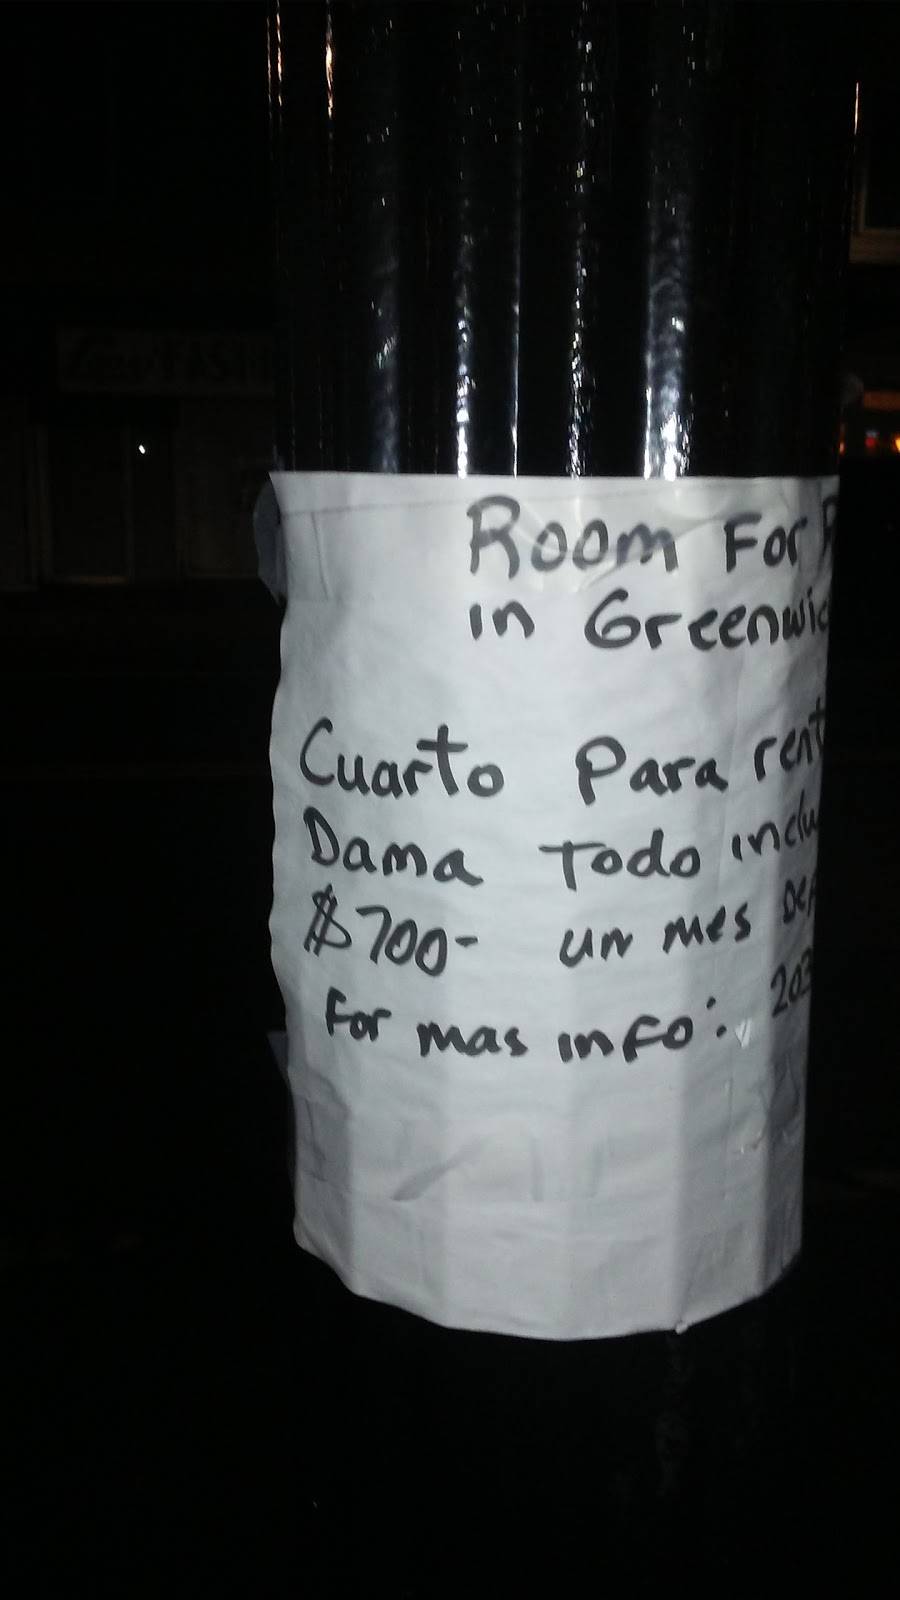 Room For R
in Greenwic
Cuarto Para rent
Dama Todo inclu
$700- un mes Dep
For mas info: 203
FASH